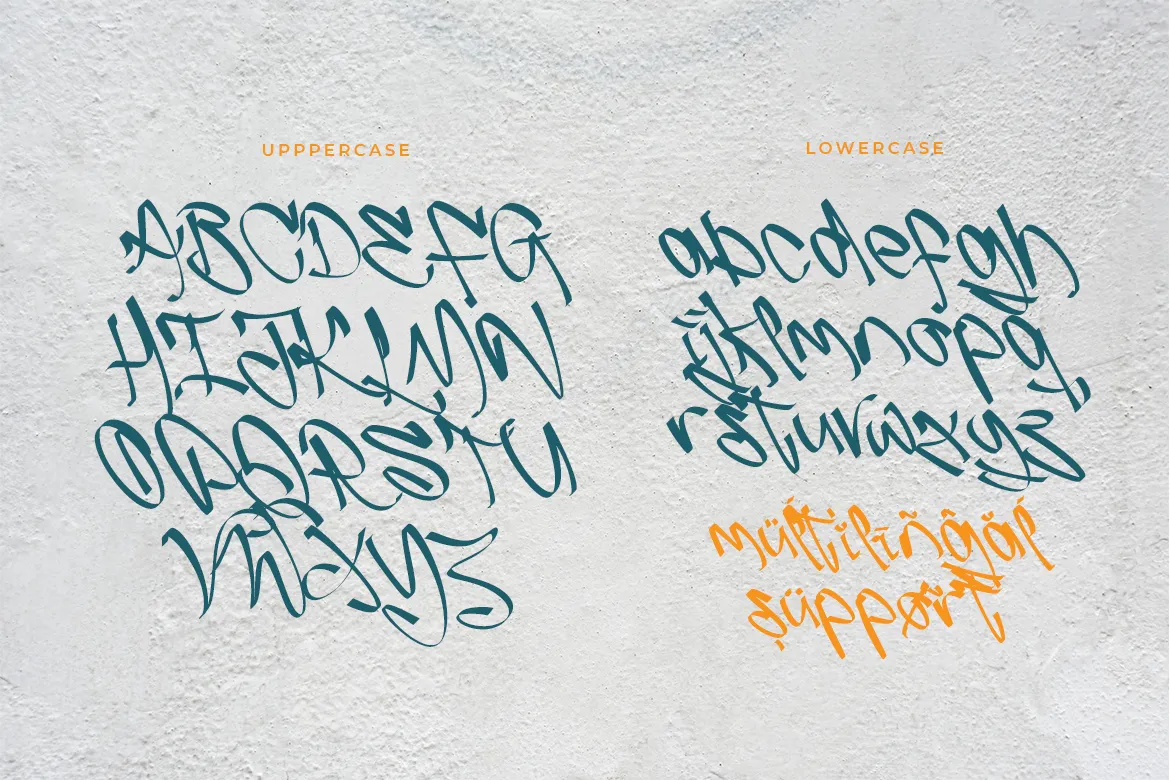 UPPPERCASE
ABCDEFG
HIJKLMN
OPQRSTU
VWXYZ
LOWERCASE
abcdefgh
ijklmnopq
rstuvwxyz
müĺtilīñĝăĺ
șüppørt